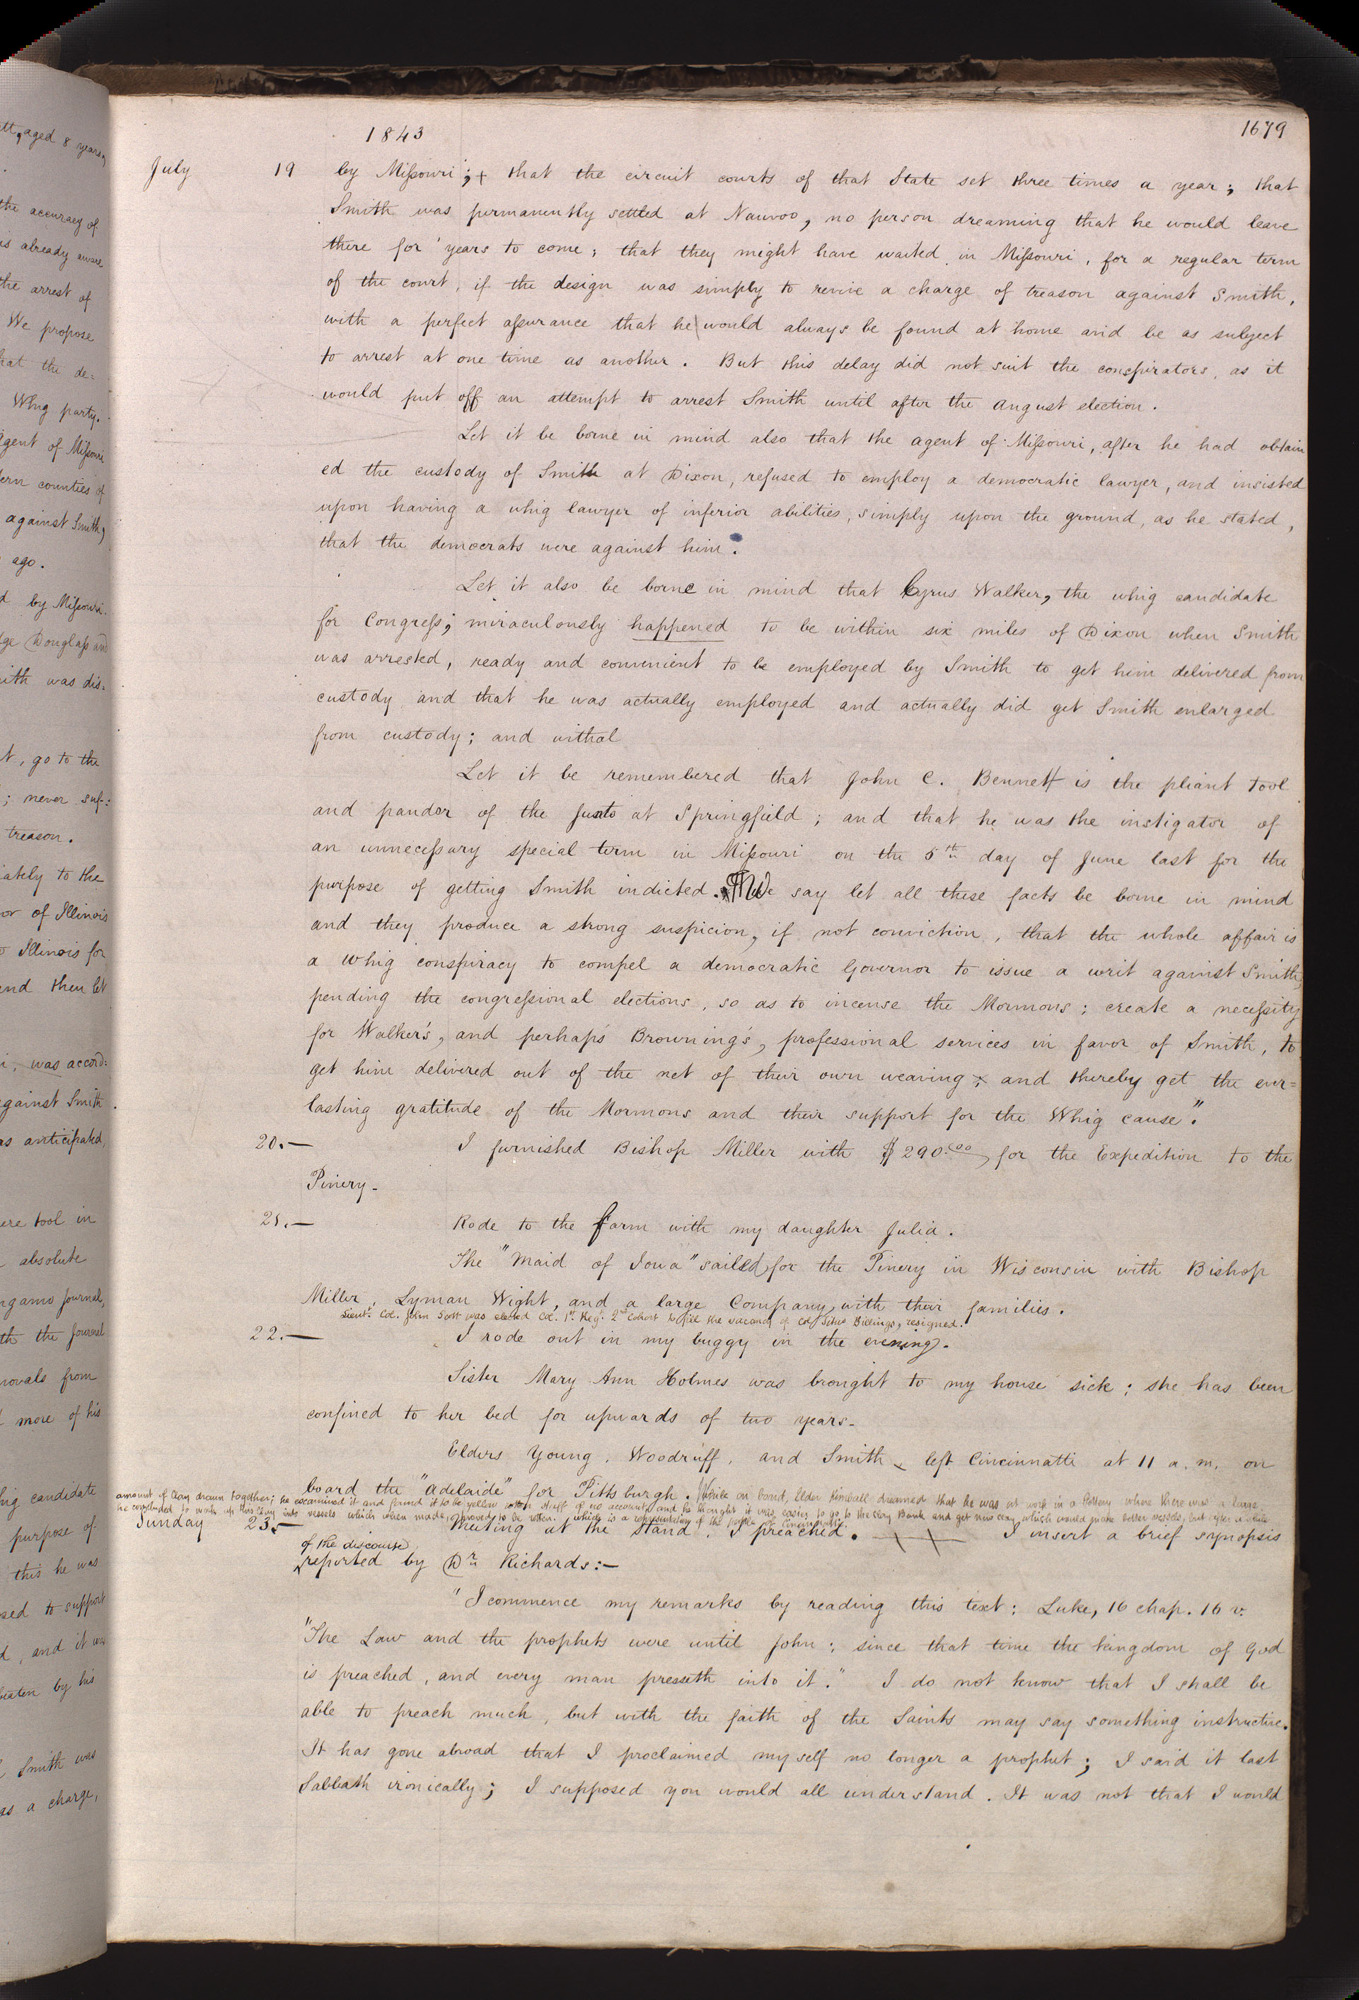 1843
1679
July 19 by Missouri; + that the circuit courts of that State set three times a year; that
Smith was permanently settled at Nauvoo, no person dreaming that he would leave
there for years to come; that they might have waited in Missouri, for a regular term
of the court, if the design was simply to revive a charge of treason against Smith,
with a perfect assurance that he would always be found at home and be as subject
to arrest at one time as another. But this delay did not suit the conspirators, as it
would put off an attempt to arrest Smith until after the August election.
Let it be borne in mind also that the agent of Missouri, after he had obtain
ed the custody of Smith at Dixon, refused to employ a democratic lawyer, and insisted
upon having a whig lawyer of inferior abilities, simply upon the ground, as he stated,
that the democrats were against him.
Let it also be borne in mind that Cyrus Walker, the whig candidate
for Congress, miraculously happened to be within six miles of Dixon when Smith
was arrested, ready and convenient to be employed by Smith to get him delivered from
custody and that he was actually employed and actually did get Smith enlarged
from custody; and withal
Let it be remembered that John C. Bennett is the pliant tool
and pander of the Junto at Springfield; and that he was the instigator of
an unnecessary special term in Missouri on the 5th day of June last for the
purpose of getting Smith indicted. We say let all these facts be borne in mind
and they produce a strong suspicion, if not conviction, that the whole affair is
a Whig conspiracy to compel a democratic Governor to issue a writ against Smith
pending the congressional elections, so as to incense the Mormons; create a necessity
for Walker's, and perhaps Browning's, professional services in favor of Smith, to
get him delivered out of the net of their own weaving; and thereby get the ever=
lasting gratitude of the Mormons and their support for the Whig cause."
20.— I furnished Bishop Miller with $290.00 for the Expedition to the
Pinery—
21.— Rode to the farm with my daughter Julia.
The "Maid of Iowa" sailed for the Pinery in Wisconsin with Bishop
Miller, Lyman Wight, and a large Company, with their families.
Lieut. Col. John Scott was elected Col. 1st Reg. 2nd Cohort to fill the vacancy of Col. Titus Billings, resigned.
22.— I rode out in my buggy in the evening.
Sister Mary Ann Holmes was brought to my house sick; she has been
confined to her bed for upwards of two years—
Elders Young, Woodruff, and Smith left Cincinnatti at 11 a.m. on
board the "Adelaide" for Pittsburgh. While on board, Elder Kimball dreamed that he was at work in a Pottery where there was a large
amount of clay drawn together; he examined it and found it to be yellow rotten stuff of no account and he thought it was easier to go to the clay Bank and get new clay which would make better vessels, but after a while
he concluded to work up this clay into vessels which when made, proved to be rotten. which is a representation of the people in Cincinnatti
Sunday 23.— Meeting at the Stand. I preached. I insert a brief synopsis
of the discourse
reported by Dr. Richards:—
"I commence my remarks by reading this text: Luke, 16 chap. 16 v.
"The Law and the prophets were until John; since that time the kingdom of God
is preached, and every man presseth into it." I do not know that I shall be
able to preach much, but with the faith of the Saints may say something instructive.
It has gone abroad that I proclaimed myself no longer a prophet; I said it last
Sabbath ironically; I supposed you would all understand. It was not that I would
ett, aged 8 years,
the accuracy of
is already aware
the arrest of
We propose
hat the de=
Whig party.
agent of Missouri
ern counties of
against Smith,
ago.
d by Missouri
ge Douglass and
ith was dis=
t, go to the
; never suf=
treason.
iately to the
or of Illinois
o Illinois for
and then let
i, was accord=
against Smith
as anticipated,
ere tool in
absolute
ngamo Journal,
th the Journal
rovals from
more of his
hig candidate
purpose of
this he was
sed to support
d, and it was
eaten by his
Smith was
as a charge,